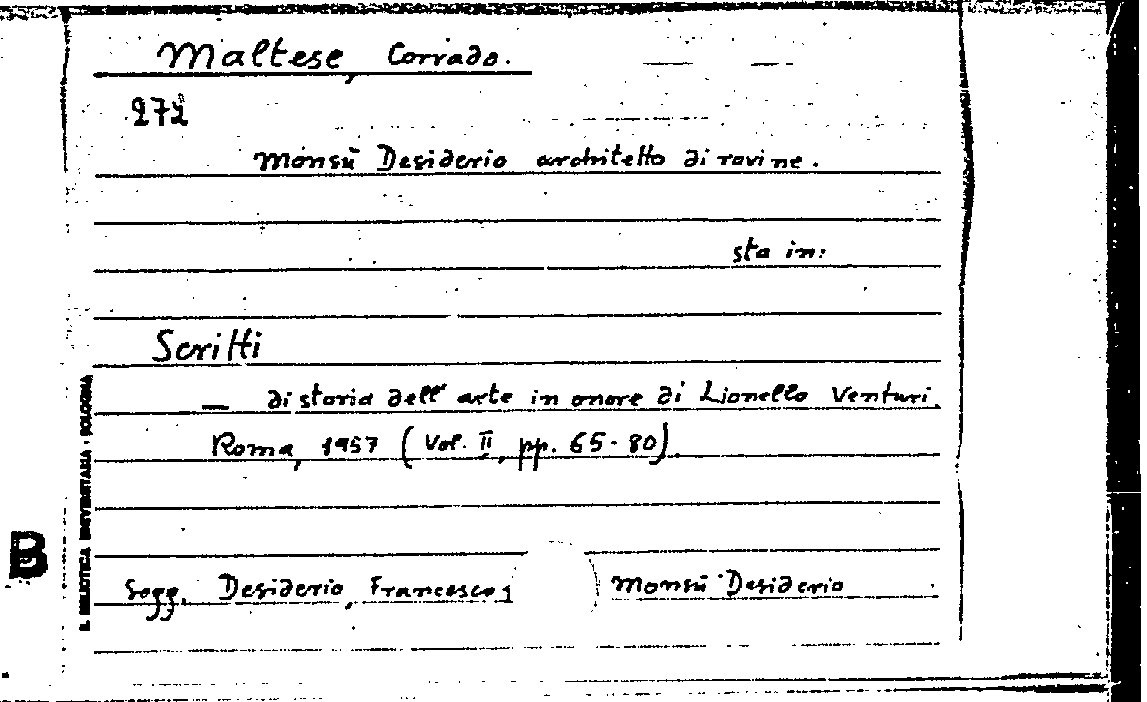 Maltese, Corrado.
272
Monsù Desiderio architetto di rovine.
sta in:
Scritti
— di storia dell'arte in onore di Lionello Venturi.
Roma, 1957 (Vol. II, pp. 65-80).
Sogg. Desiderio, Francesco, Monsù Desiderio
B
R. BIBLIOTECA UNIVERSITARIA - BOLOGNA